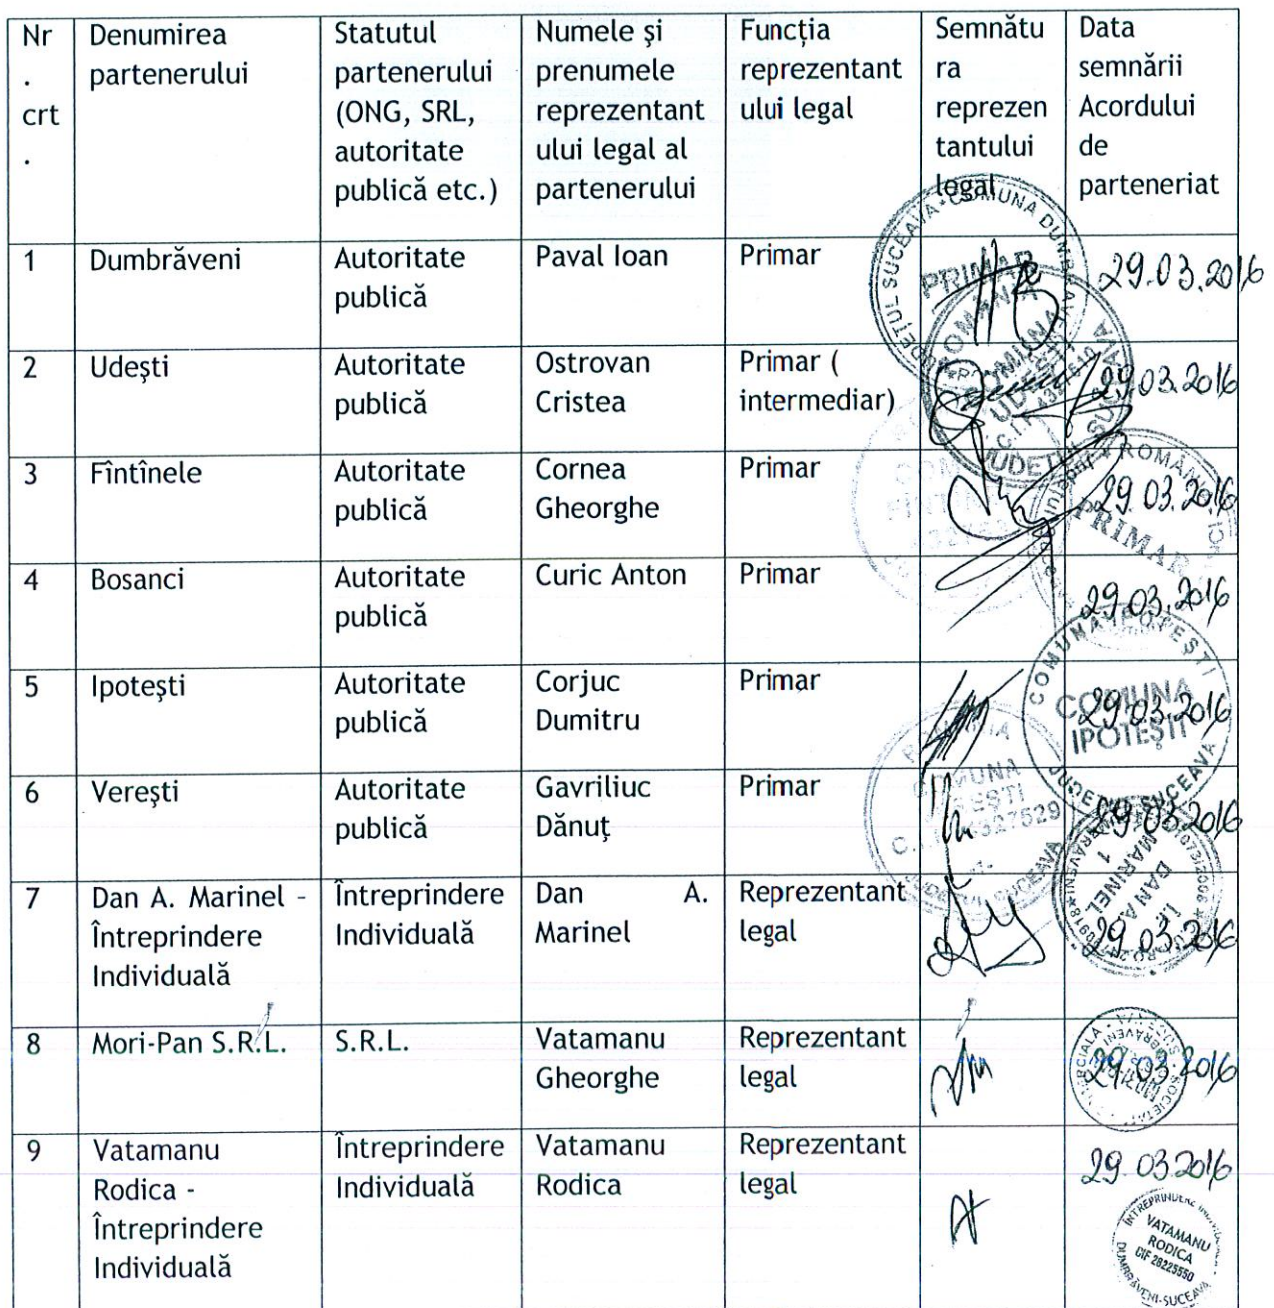 Nr
.
crt
.
Denumirea
partenerului
Statutul
partenerului
(ONG, SRL,
autoritate
publică etc.)
Numele şi
prenumele
reprezentant
ului legal al
partenerului
Funcţia
reprezentant
ului legal
Semnătu
ra
reprezen
tantului
legal
Data
semnării
Acordului
de
parteneriat
1
Dumbrăveni
Autoritate
publică
Paval Ioan
Primar
29.03.2016
2
Udeşti
Autoritate
publică
Ostrovan
Cristea
Primar (
intermediar)
29.03.2016
3
Fîntînele
Autoritate
publică
Cornea
Gheorghe
Primar
29.03.2016
4
Bosanci
Autoritate
publică
Curic Anton
Primar
29.03.2016
5
Ipoteşti
Autoritate
publică
Corjuc
Dumitru
Primar
29.03.2016
6
Vereşti
Autoritate
publică
Gavriliuc
Dănuţ
Primar
29.03.2016
7
Dan A. Marinel -
Întreprindere
Individuală
Întreprindere
Individuală
Dan A.
Marinel
Reprezentant
legal
29.03.2016
8
Mori-Pan S.R.L.
S.R.L.
Vatamanu
Gheorghe
Reprezentant
legal
29.03.2016
9
Vatamanu
Rodica -
Întreprindere
Individuală
Întreprindere
Individuală
Vatamanu
Rodica
Reprezentant
legal
29.03.2016
JUDEŢUL SUCEAVA * COMUNA DUMBRĂVENI
PRIMAR
ROMÂNIA
COMUNA
UDEŞTI
ROMÂNIA
PRIMAR
COMUNA IPOTEŞTI
COMUNA
IPOTEŞTI
JUDEŢUL SUCEAVA
COMUNA
4327529
JUDEŢUL SUCEAVA
DAN A
MARINEL
VATAMANU
RODICA
CIF 28225550
DUMBRĂVENI-SUCEAVA